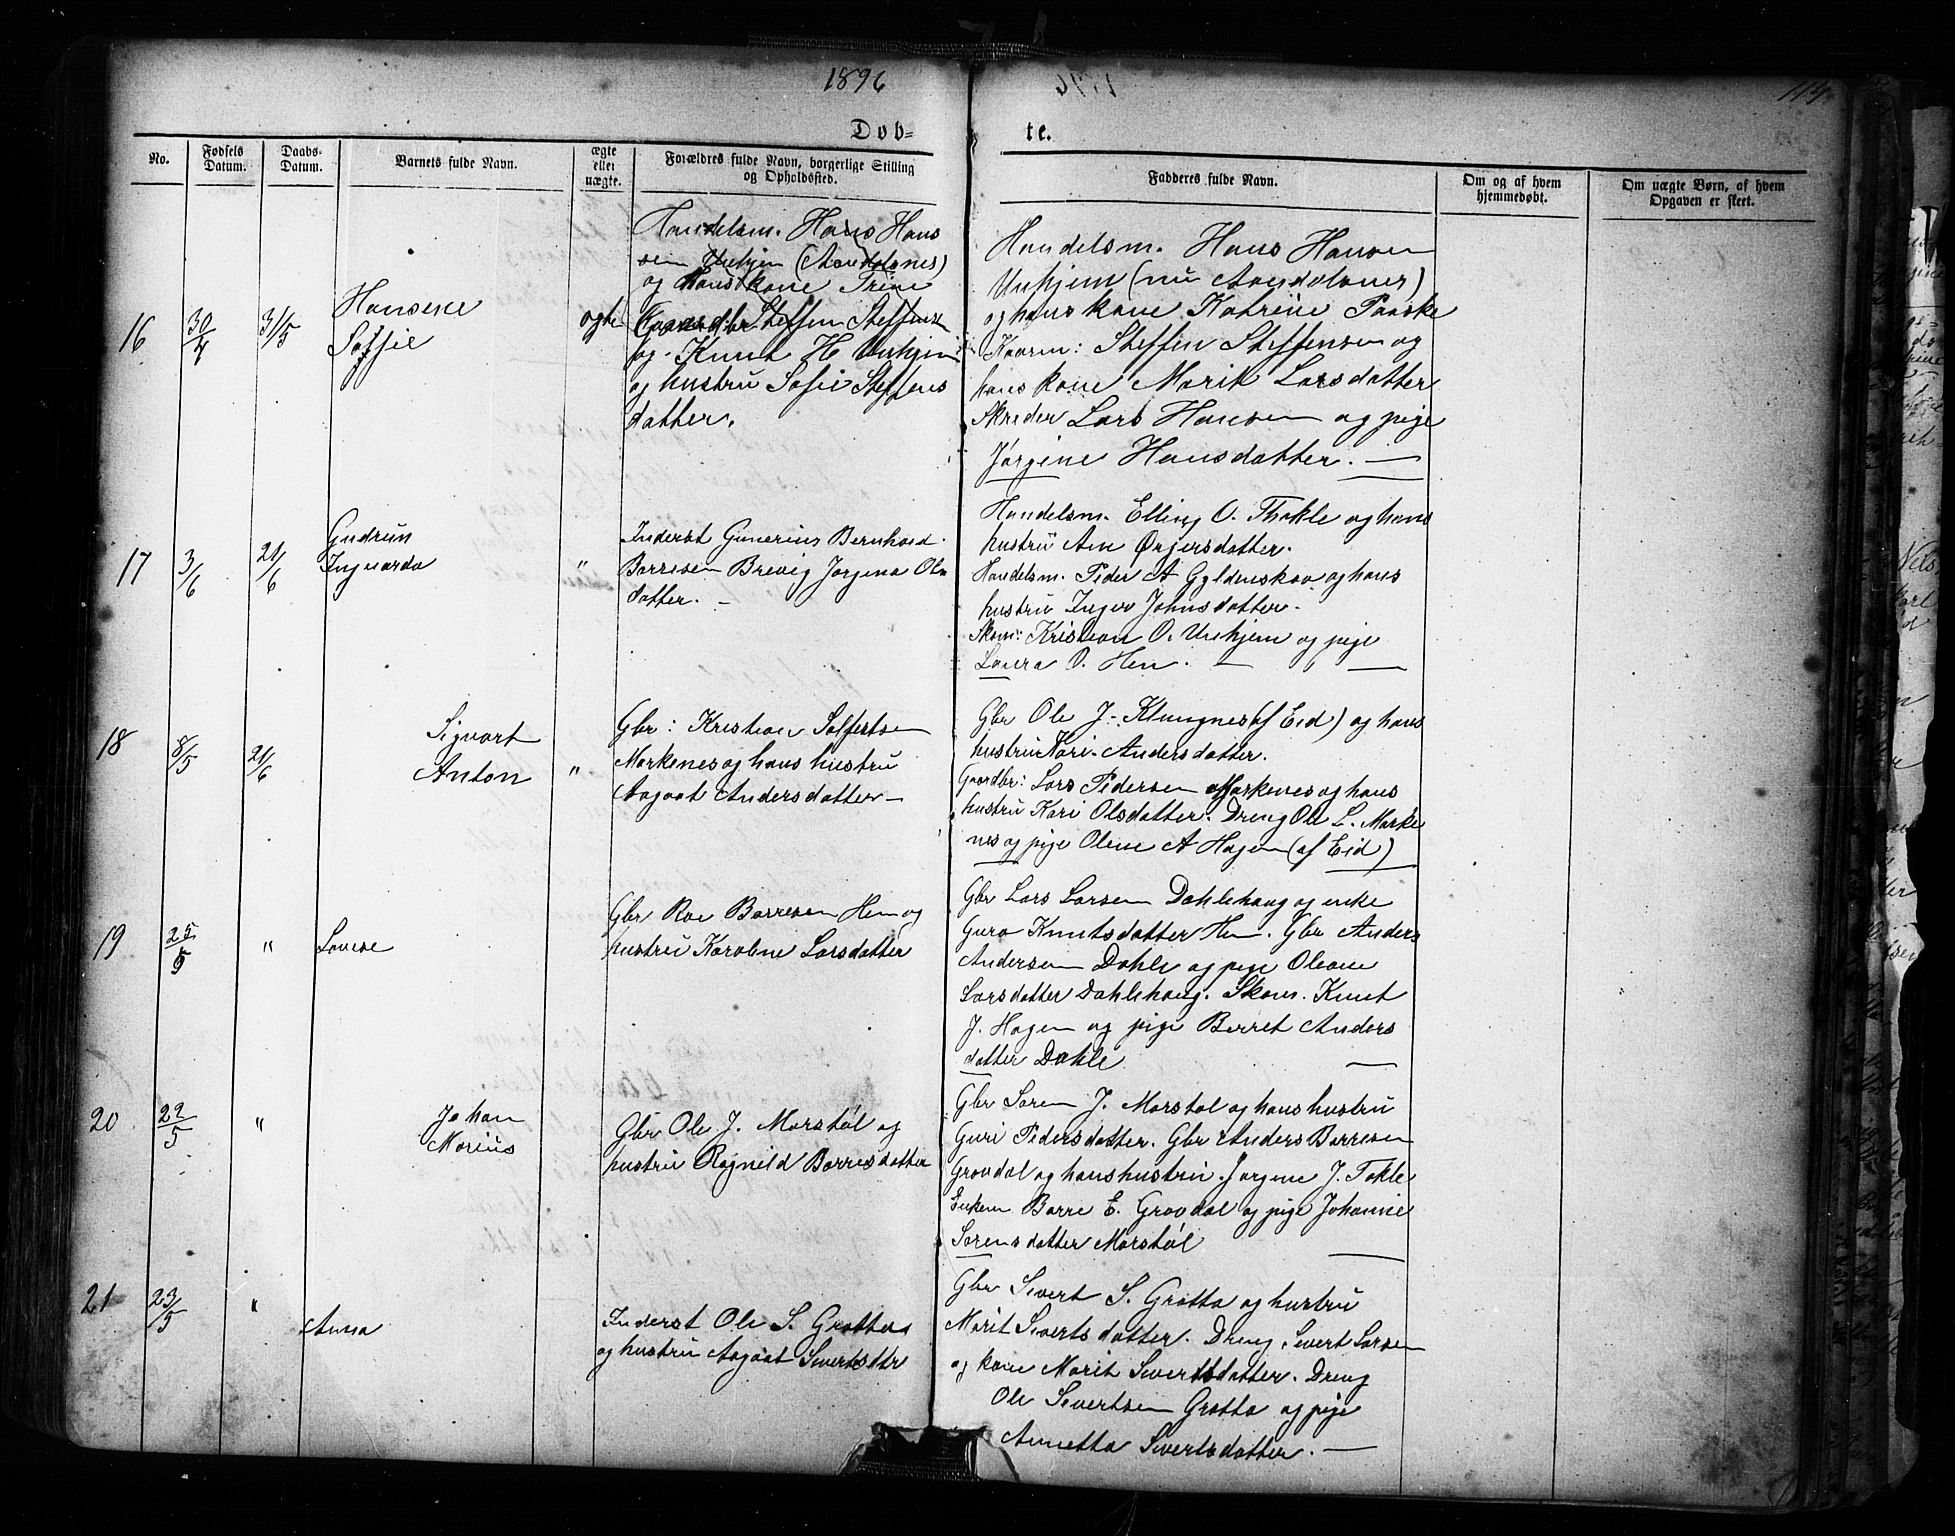 1896
113
Døb-
te.
No.
Fødsels Datum.
Daabs-Datum.
Barnets fulde Navn.
ægte eller uægte.
Forældres fulde Navn, borgerlige Stilling og Opholdssted.
Fadderes fulde Navn.
Om og af hvem hjemmedøbt.
Om uægte Børn, af hvem Opgaven er skeet.
16
30/4
31/5
Hansene
Soffie
ægte
Handelsm. Hans Han
sen Unhjem (Aandalsnes)
og Hans kone Trine
Gaardbr. Steffen Steffensen
og Knut H Unhjem
og hustru Sofie Steffens
datter.
Handelsm. Hans Hansen
Unhjem (nu Aandalsnes)
og hans kone Katrine Paaske
Kaarm: Steffen Steffensen og
hans kone Marit Larsdatter
Skreder Lars Hansen og pige
Jørgine Hansdatter. —
17
3/6
21/6
Gudrun
Ingvarda
"
Inderst Gunerius Bernhard
Børresen Brevig Jørgina Ols
datter. —
Handelsm. Elling O. Thokle og hans
hustru Ane Ørjersdatter.
Handelsm. Peder A Gyldenskov og hans
hustru Inger Johnsdatter.
Skom: Kristian O. Unhjem og pige
Laura O. Hen. —
18
8/5
21/6
Sigvart
Anton
"
Gbr: Kristian Solfestsen
Morkenes og hans hustru
Aagaat Andersdatter —
Gbr Ole J. Klungnes (af Eid) og hans
hustru Kari Andersdatter.
Gaardbr: Lars Pedersen Morkenes og hans
hustru Kari Olsdatter. Dreng Ole L. Morke
nes og pige Olene A Hagen (af Eid)
19
25/5
"
Lovise
Gbr Roe Børresen Hen og
hustru Karoline Larsdatter
Gbr Lars Larsen Dahlehaug og enke
Guro Knutsdatter Hen. Gbr Anders
Andersen Dahle og pige Oleane
Larsdatter Dahlehaug. Skom. Knut
J. Hagen og pige Berret Anders
datter Dahle —
20
22/5
"
Johan
Marius
Gbr Ole J. Morstøl og
hustru Ragnild Børresdatter
Gbr Søren J. Morstøl og hans hustru
Guri Pedersdatter. Gbr Anders Børresen
Grovdal og hans hustru. Jørgine J. Tokle
Enkem Børre E. Grovdal og pige Johanne
Sørensdatter Morstøl —
21
23/5
"
Anna
Inderst Ole S. Grøtta
og hustru Aagaat Sivertsdtr
Gbr Sivert S. Grøtta og hustru
Marit Sivertsdatter. Dreng Sivert Larsen
og kone Marit Sivertsdatter. Dreng
Ole Sivertsen Grøtta og pige
Annetta Sivertsdatter. —